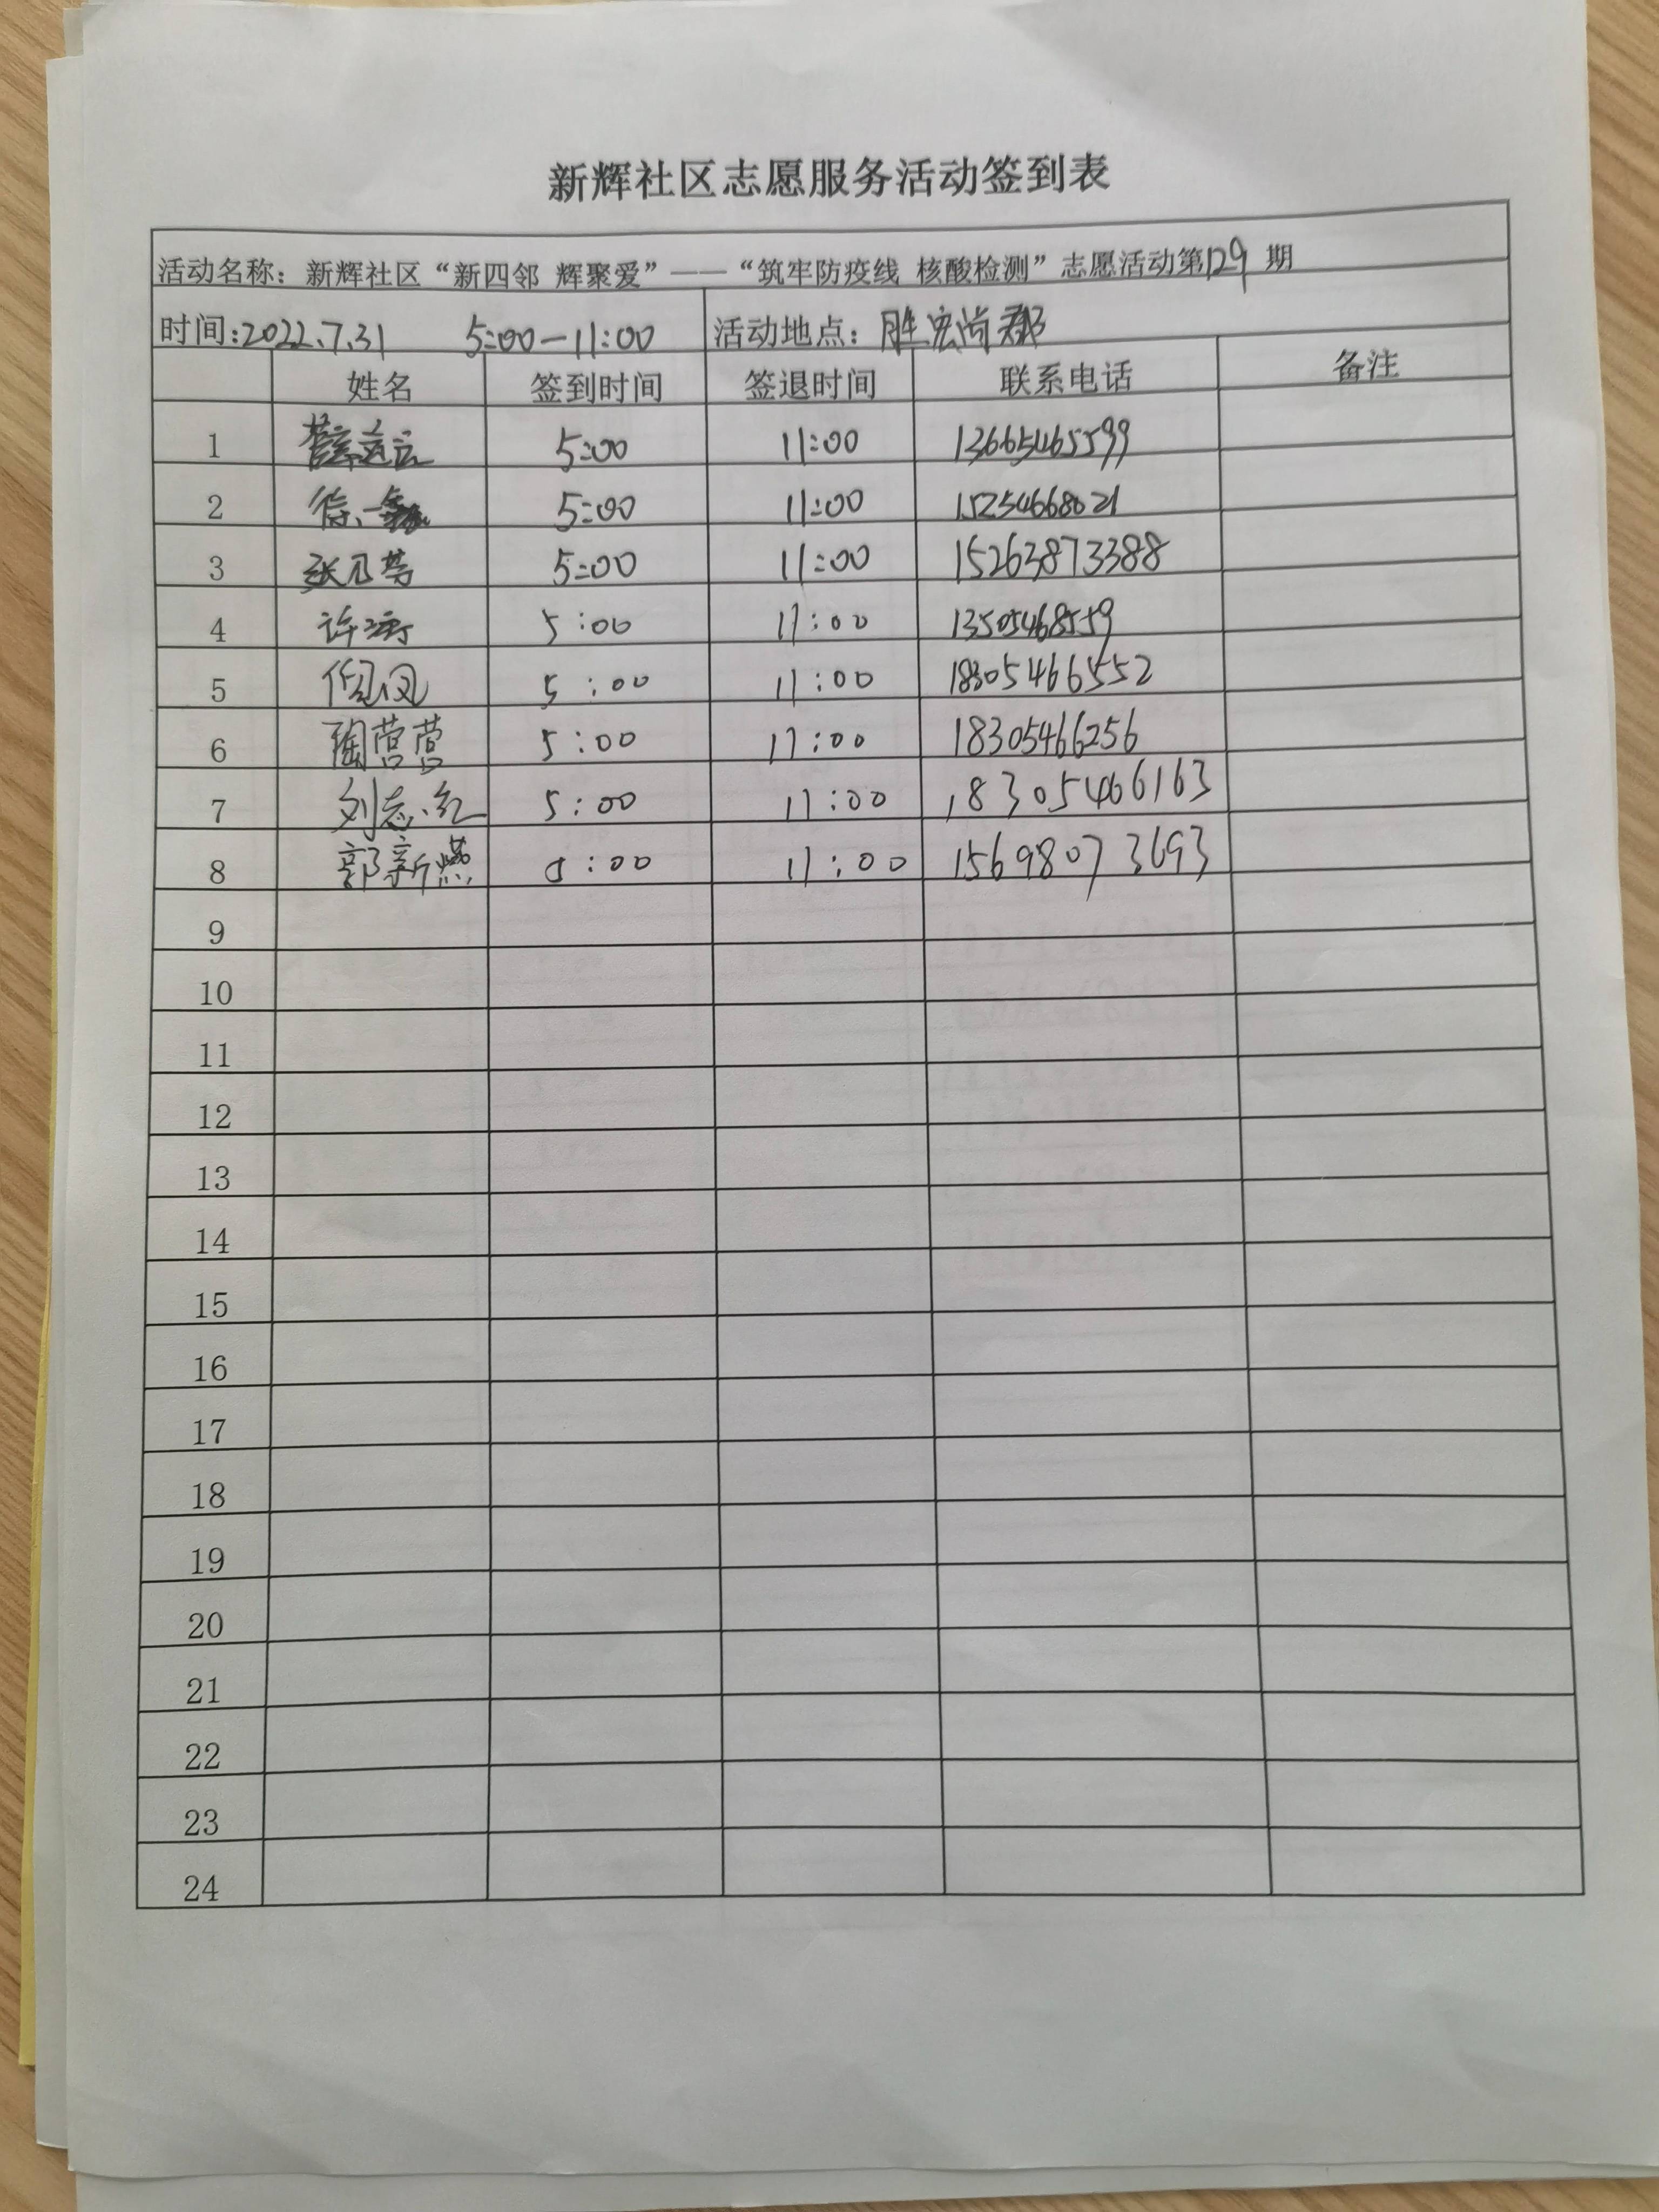 新辉社区志愿服务活动签到表
活动名称：新辉社区“新四邻 辉聚爱”——“筑牢防疫线 核酸检测”志愿活动第129期
时间:2022.7.31 5:00-11:00 活动地点：胜宏尚郡
姓名 签到时间 签退时间 联系电话 备注
1 5:00 11:00 13665465599
2 徐 5:00 11:00 15254668021
3 张 5:00 11:00 15263873388
4 许 5:00 11:00 13505468559
5 5:00 11:00 18305466552
6 陶营营 5:00 11:00 18305466256
7 刘志红 5:00 11:00 18305466163
8 郭新燕 5:00 11:00 15698073693
9
10
11
12
13
14
15
16
17
18
19
20
21
22
23
24